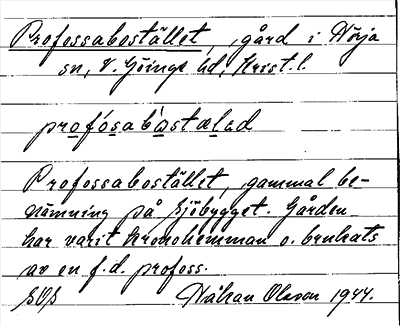 Profossabostället, gård i Nörja
sn, V. Göinge hd, Krist. l.
profósabɔ̀stælɛd
Profossabostället, gammal be-
nämning på Sjöbygget. Gården
har varit kronohemman o. brukats
av en f.d. profoss.
Håkan Olsson 1944.